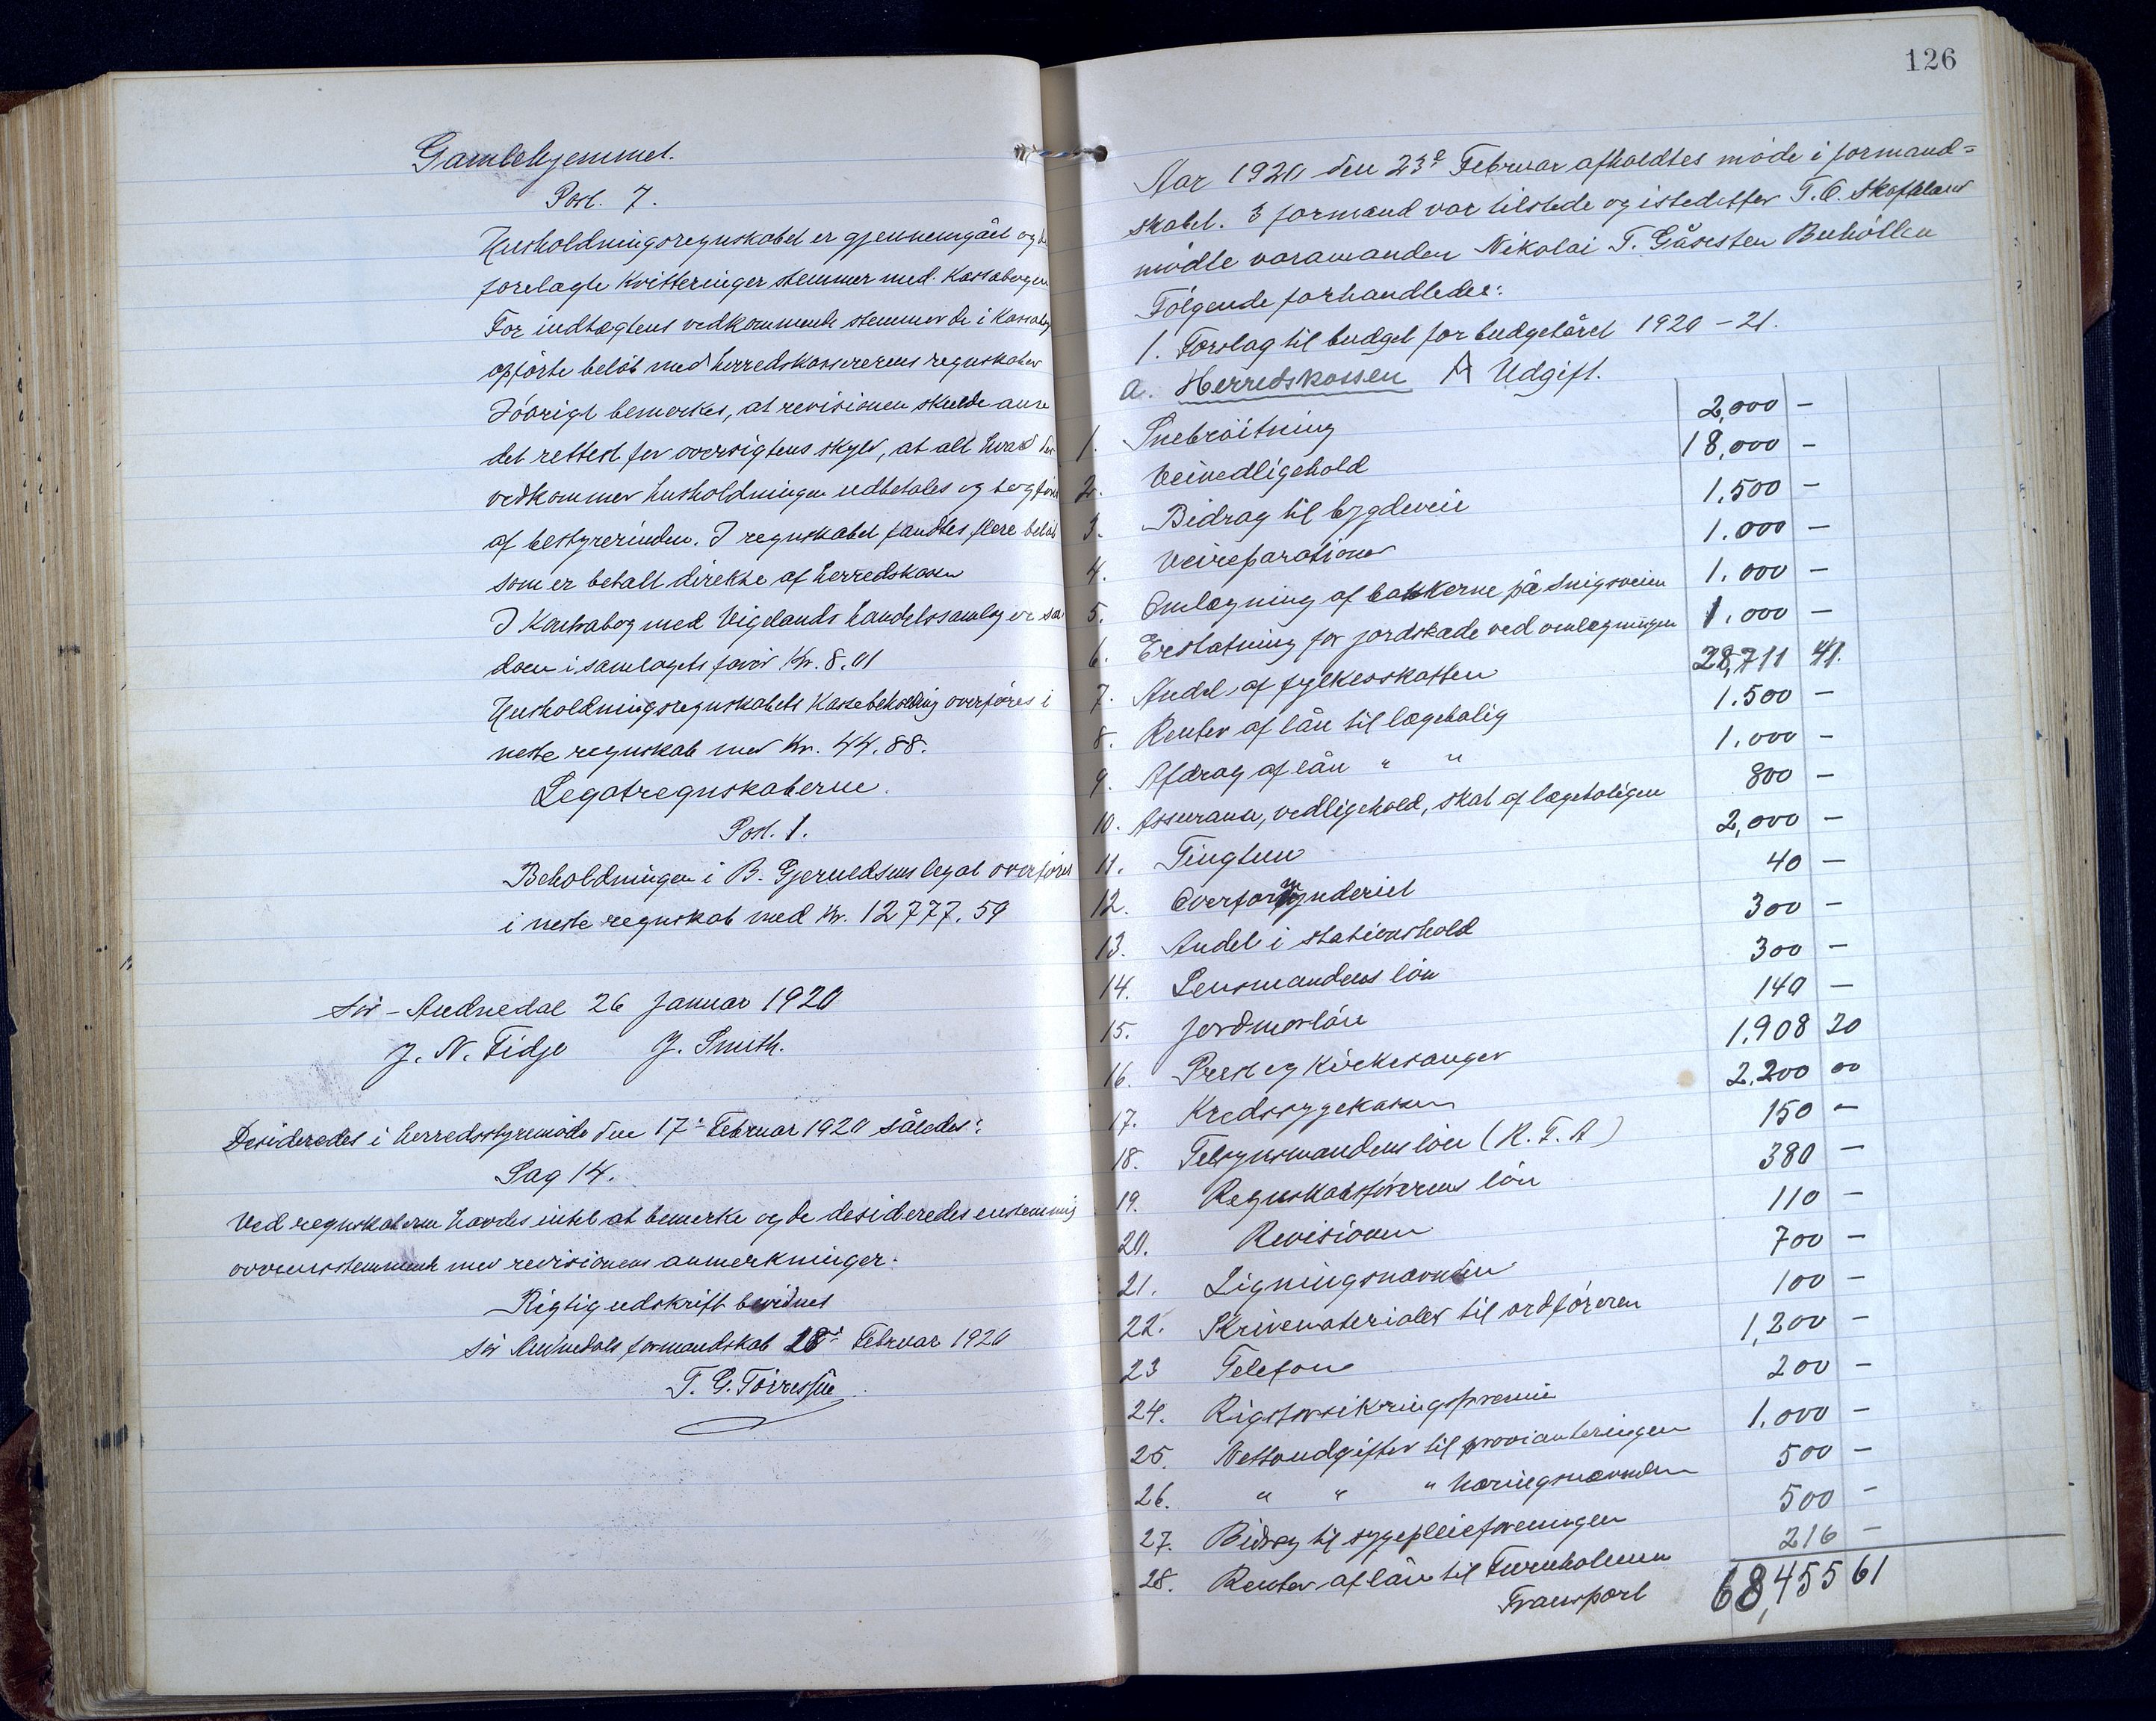 Gamlehjemmet.
Post. 7.
Husholdningsregnskabet er gjennemgået og de
forelagte Kvitteringer stemmer med Kassabogen
For indtægtens vedkommende stemmer de i Kassabog
opførte beløb med herredskassererens regnskaber
Iøvrigt bemerkes, at revisionen skulde anse
det rettest for oversigtens skyld, at alt hvad der
vedkommer husholdningen udbetales og bogføres
af bestyrerinden. I regnskabet fandtes flere beløb
som er betalt direkte af herredskassen
I Kontrabog med Vigelands handelssamlag er sal
doen i samlagets favør Kr. 8.01
Husholdningsregnskabets Kassebeholdning overføres i
neste regnskab med Kr. 44.88.
Legatregnskaberne.
Post. 1.
Beholdningen i B. Gjerueldsens legat overføres
i neste regnskab med Kr. 12777.59
Sør-Audnedal 26 Januar 1920
J. N. Tidje J. Smith.
Desideredes i herredsstyremøde den 17de Februar 1920 således:
Sag 14.
Ved regnskaberne havdes intet at bemerke og de desideredes enstemmig
overensstemmende med revisionens anmerkninger.
Rigtig udskrift bevidnes
Sør Audnedals formandskab 18de Februar 1920
T. G. Tørressen
126
Aar 1920 den 23de Februar afholdtes møde i formand=
skabet. 3 formænd var tilstede og istedetfor T. O. Skofteland
mødte varamanden Nikolai T. Gåsesten Buhøllen
Følgende forhandledes:
1. Forslag til budget for budgetåret 1920-21.
a. Herredskassen A Udgift.
1. Snebrøitning 2,000 -
2. Veivedligehold 18,000 -
3. Bidrag til bygdeveie 1.500 -
4. Veireparationer 1.000 -
5. Omlægning af bakkerne på Snigsveien 1.000 -
6. Erstatning for jordskade ved omlægningen 1.000 -
7. Andel af fylkesskatten 28,711 41.
8. Renter af lån til lægebolig 1.500 -
9. Afdrag af lån " " 1.000 -
10. Assurance, vedligehold, skat af lægeboligen 800 -
11. Tingstuen 2,000 -
12. Overformynderiet 40 -
13. Andel i stationshold 300 -
14. Lensmandens løn 300 -
15. Jordmorløn 140 -
16. Prest og Kirkesanger 1,908 20
17. Kredssygekassen 2,200 00
18. Tilsynsmandens løn (R. F. A) 150 -
19. Regnskabsførerens løn 380 -
20. Revisionen 110 -
21. Ligningsnævnden 700 -
22. Skrivematerialer til ordføreren 100 -
23 Telefon 1,200 -
24. Rigsforsikringspremie 200 -
25. Nettoudgifter til provianteringen 1.000 -
26. " " " næringsnævnden 500 -
27. Bidrag til sygepleieforeningen 500 -
28. Renter af lån til Furuholmen 216 -
Transport 68,455 61